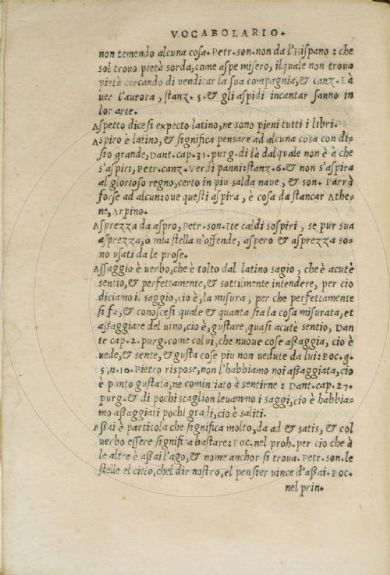 VOCABOLARIO.
non temendo alcuna cosa. Petr. son. non da l'Hispano: che
sol trovo pietà sorda, come aspe misero, il quale non trovo
pietà cercando di vendicar la sua compagnia, & canz. Là
ver l'aurora, stanz. 5. & gli aspidi incantar sanno in
lor arte.
Aspetto dicesi expecto latino, ne sono pieni tutti i libri.
Aspiro è latino, & significa pensare ad alcuna cosa con di=
sio grande, Dant. cap. 31. purg. di là dal quale non è à che
s'aspiri, Petr. canz. Verdi panni stanz. 6. & non s'aspira
al glorioso regno, certo in piu salda nave, & son. Parrà
forse ad alcun: ove questi aspira, è cosa da stancar Athe=
ne, Arpino.
Asprezza da aspro, Petr. son. Ite caldi sospiri, se pur sua
asprezza, o mia stella n'offende, aspero & asprezza so=
no usati da le prose.
Assaggio è verbo, che è tolto dal latino sagio, che è acutè
sentio, & perfettamente, & sottilmente intendere, per cio
diciamo il saggio, cio è, la misura, per che perfettamente
si fà, & conoscesi quale & quanta sia la cosa misurata, et
aßaggiare del vino, cio è, gustare, quasi acutè sentio, Dan
te cap. 2. purg. come colui, che nuove cose aßaggia, cio è
vede, & sente, & gusta cose piu non vedute da lui: Boc. g.
5. n. 10. Pietro rispose, non l'habbiamo noi aßaggiata, cio
è punto gustata, ne cominciato è sentirne: Dant. cap. 27.
purg. & di pochi scaglion levammo i saggi, cio è habbia=
mo aßaggiati pochi gradi, cio è saliti.
Aßai è particola che significa molto, da ad & satis, & col
verbo essere significa bastare: Boc. nel proh. per cio che à
le altre è aßai l'ago, & nome anchor si trova. Petr. son. le
stelle el cielo, chel dir nostro, el pensier vince d'aßai. Boc.
nel prin.